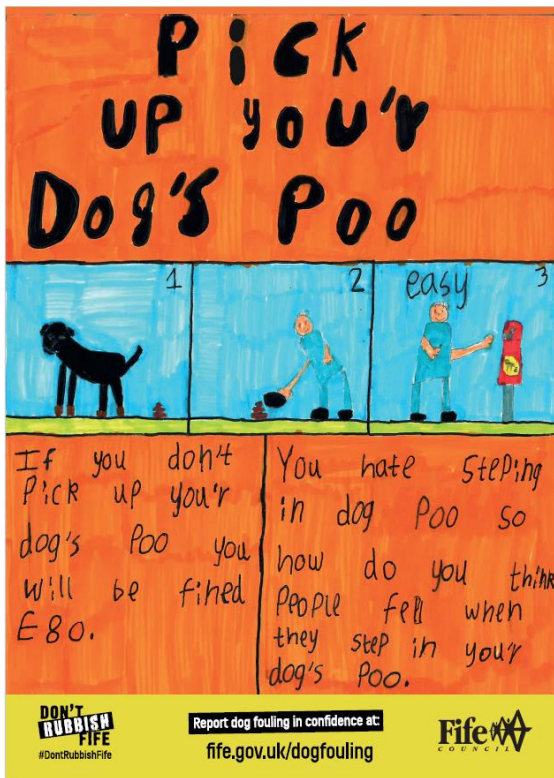 PiCK
UP you'r
Dog's Poo
1
2
easy 3
If you don't
Pick up you'r
dog's Poo you
will be fined
£80.
You hate stePing
in dog Poo so
how do you think
PeoPle fell when
they steP in your
dog's Poo.
DON'T
RUBBISH
FIFE
#DontRubbishFife
Report dog fouling in confidence at:
fife.gov.uk/dogfouling
Fife
COUNCIL